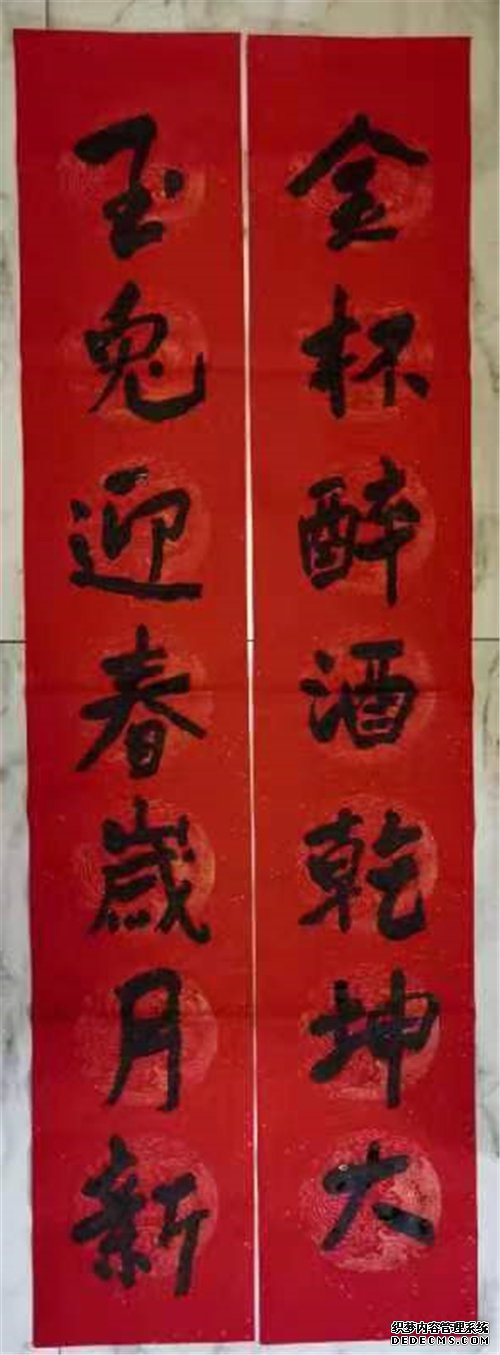 金杯醉酒乾坤大
玉兔迎春歲月新
织梦内容管理系统
DEDECMS.COM